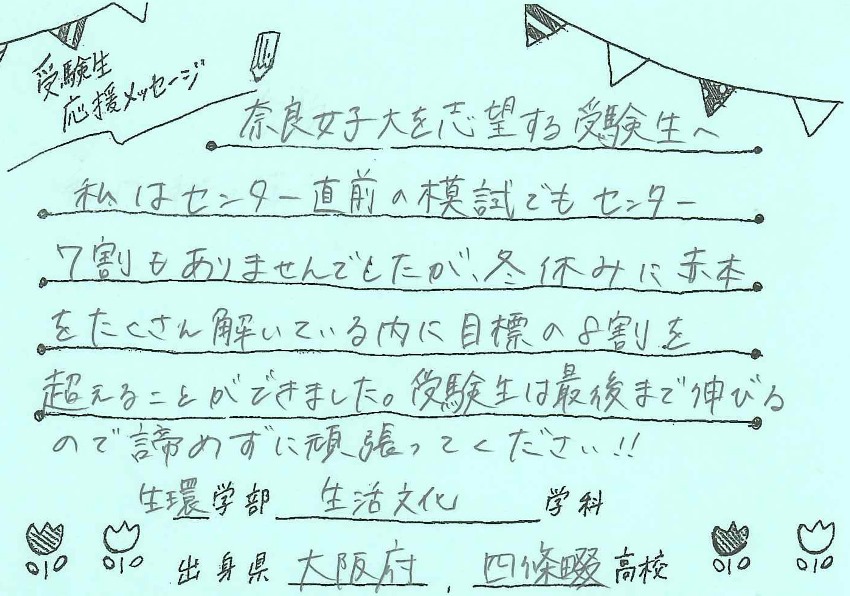 受験生
応援メッセージ
奈良女子大を志望する受験生へ
私はセンター直前の模試でもセンター
7割もありませんでしたが、冬休みに赤本
をたくさん解いている内に目標の8割を
超えることができました。受験生は最後まで伸びる
ので諦めずに頑張ってください!!
生環学部 生活文化 学科
出身県 大阪府 、四條畷高校